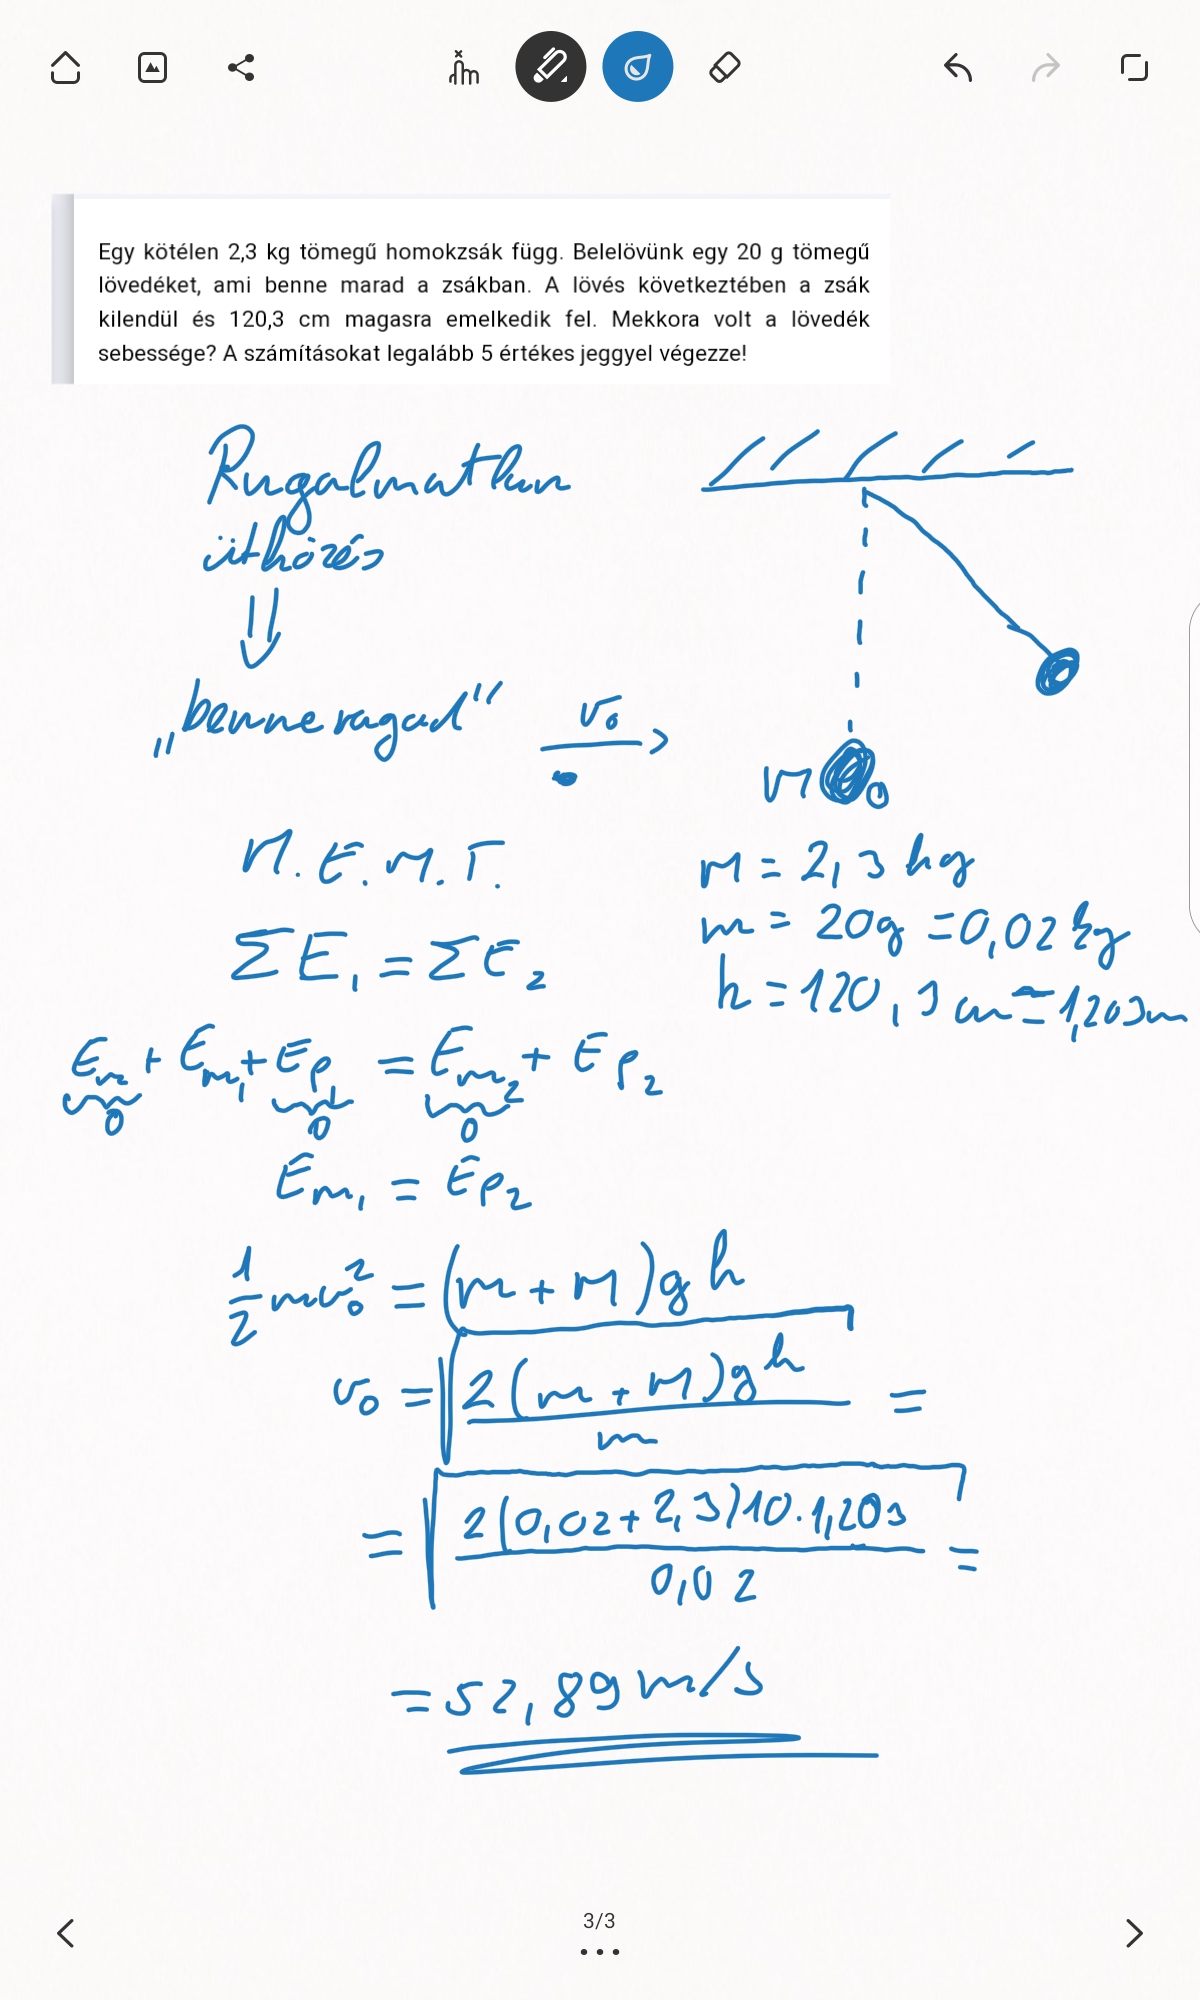 Egy kötélen 2,3 kg tömegű homokzsák függ. Belelövünk egy 20 g tömegű
lövedéket, ami benne marad a zsákban. A lövés következtében a zsák
kilendül és 120,3 cm magasra emelkedik fel. Mekkora volt a lövedék
sebessége? A számításokat legalább 5 értékes jeggyel végezze!
Rugalmatlan
ütközés
⇓
„benneragad"
v₀
M
M = 2,3 kg
m = 20g = 0,02 kg
h = 120,3 cm = 1,203m
M.E.M.T.
ΣE₁ = ΣE₂
Em + Em₁ + Ep₁ = Em₂ + Ep₂
0 0 0
Em₁ = Ep₂
1/2 mv₀² = (m + M)gh
v₀ = √(2(m + M)gh / m) =
= √(2(0,02 + 2,3)10·1,203 / 0,02) =
= 52,89 m/s
3/3